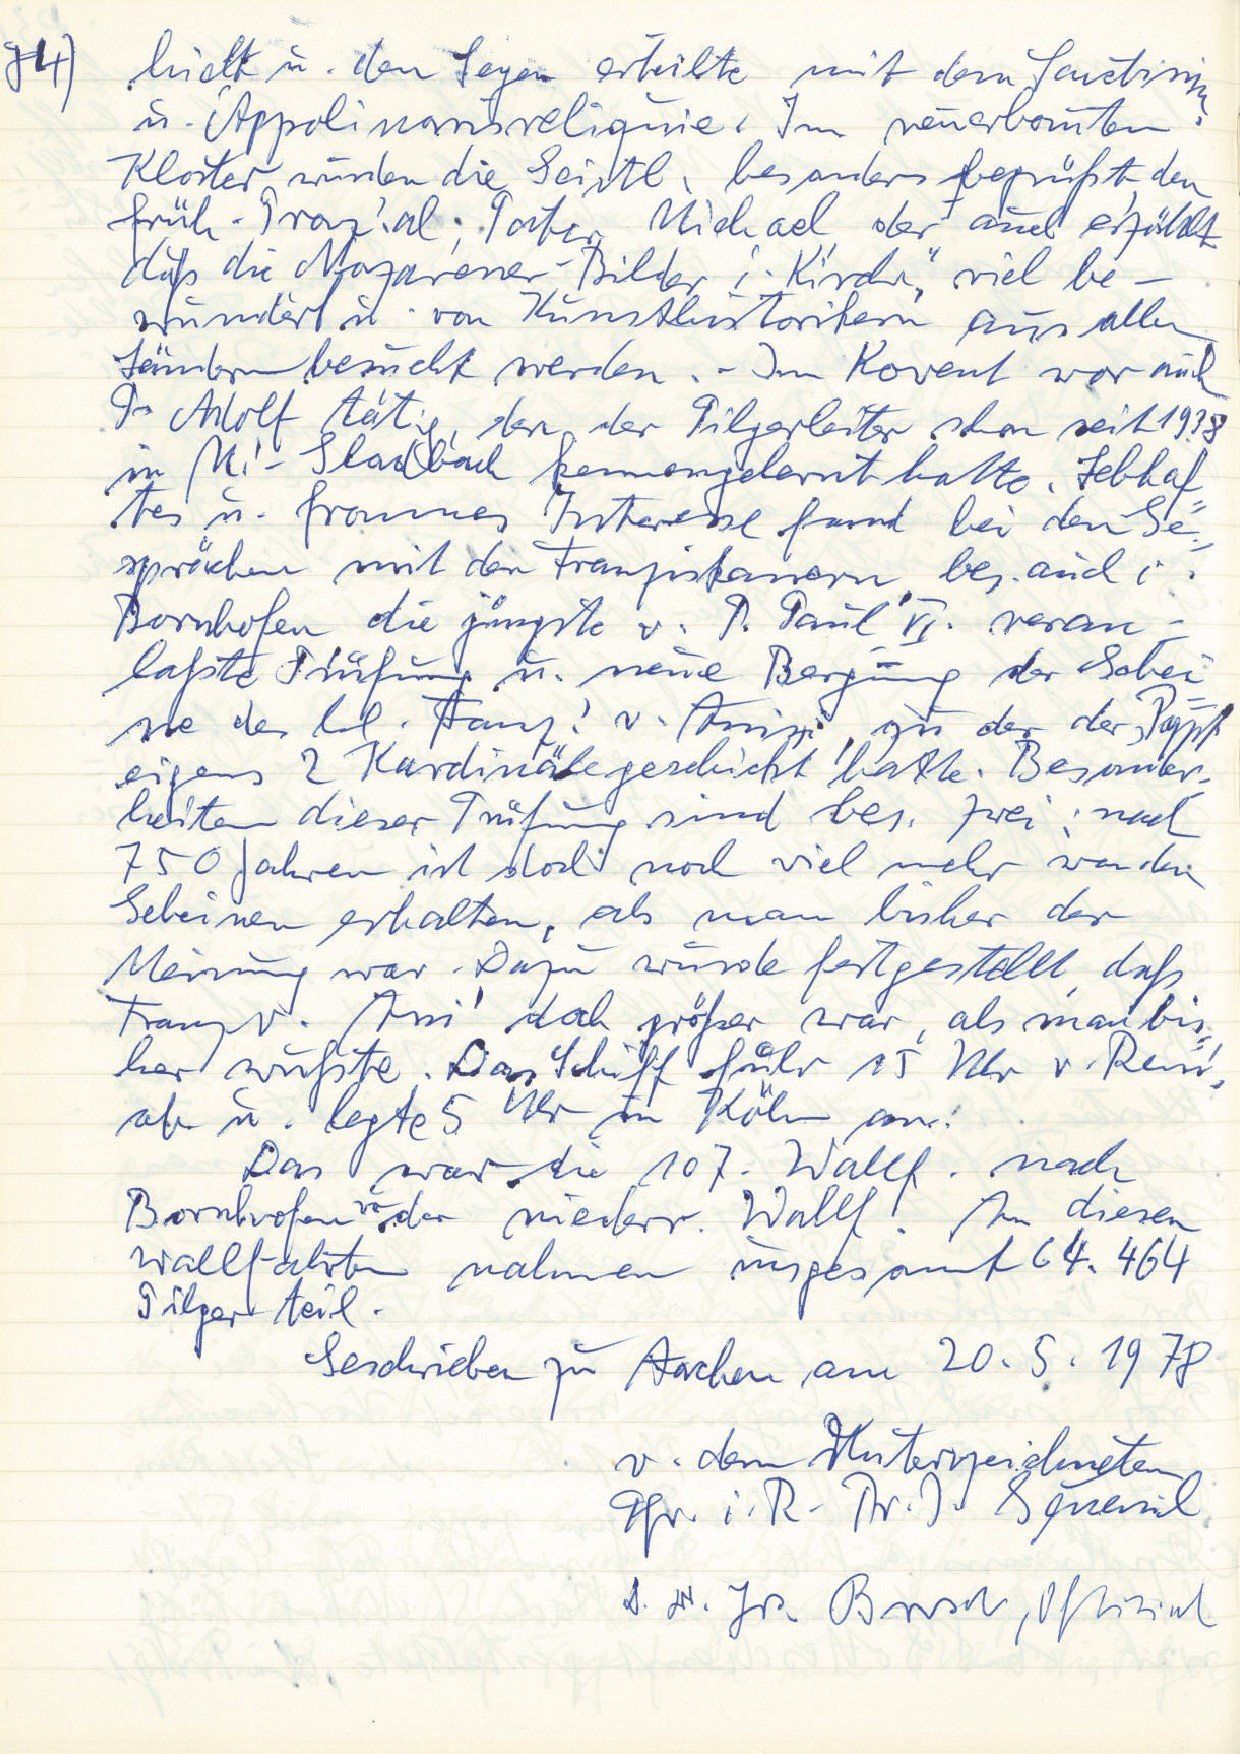 84) hielt u. den Segen erteilte mit dem Sanctissim.
u. Appolinarisreliquie. Im neuerbauten
Kloster wurden die Geistl. besonders begrüßt, den
früh. Provizial; Pater Michael der auch erzählt
daß die Nazarener-Bilder i. Kirche, viel be-
wundert u. von Kunsthistorikern aus allen
Ländern besucht werden. - Im Kovent war auch
P. Adolf tätig, den der Pilgerleiter schon seit 1938
in M.-Gladbach kennengelernt hatte. Lebhaf-
tes u. frommes Interesse fand bei den Ge-
sprächen mit den Franziskanern, bes. auch i.
Bornhofen die jüngste v. P. Paul VI. veran-
laßte Prüfung u. neue Bergung der Gebei-
ne des hl. Franz. v. Assisi, zu der der Papst
eigens 2 Kardinäle geschickt hatte. Besonder-
heiten dieser Prüfung sind bes. zwei: nach
750 Jahren ist doch noch viel mehr von den
Gebeinen erhalten, als man bisher der
Meinung war. Dazu wurde festgestellt, daß
Franz v. Assi doch größer war, als man bis-
her wußte. Das Schiff fuhr 15 Uhr v. Rem.
ab u. legte 5 Uhr in Köln an.
Das war die 107. Wallf. nach
Bornhofen von der niederr. Wallf. An diesen
Wallfahrten nahmen insgesamt 64.464
Pilger teil.
Geschrieben zu Aachen am 20.5.1978
v. dem Unterzeichneten
Pfr. i. R. Dr. J.
Jos. Offizial